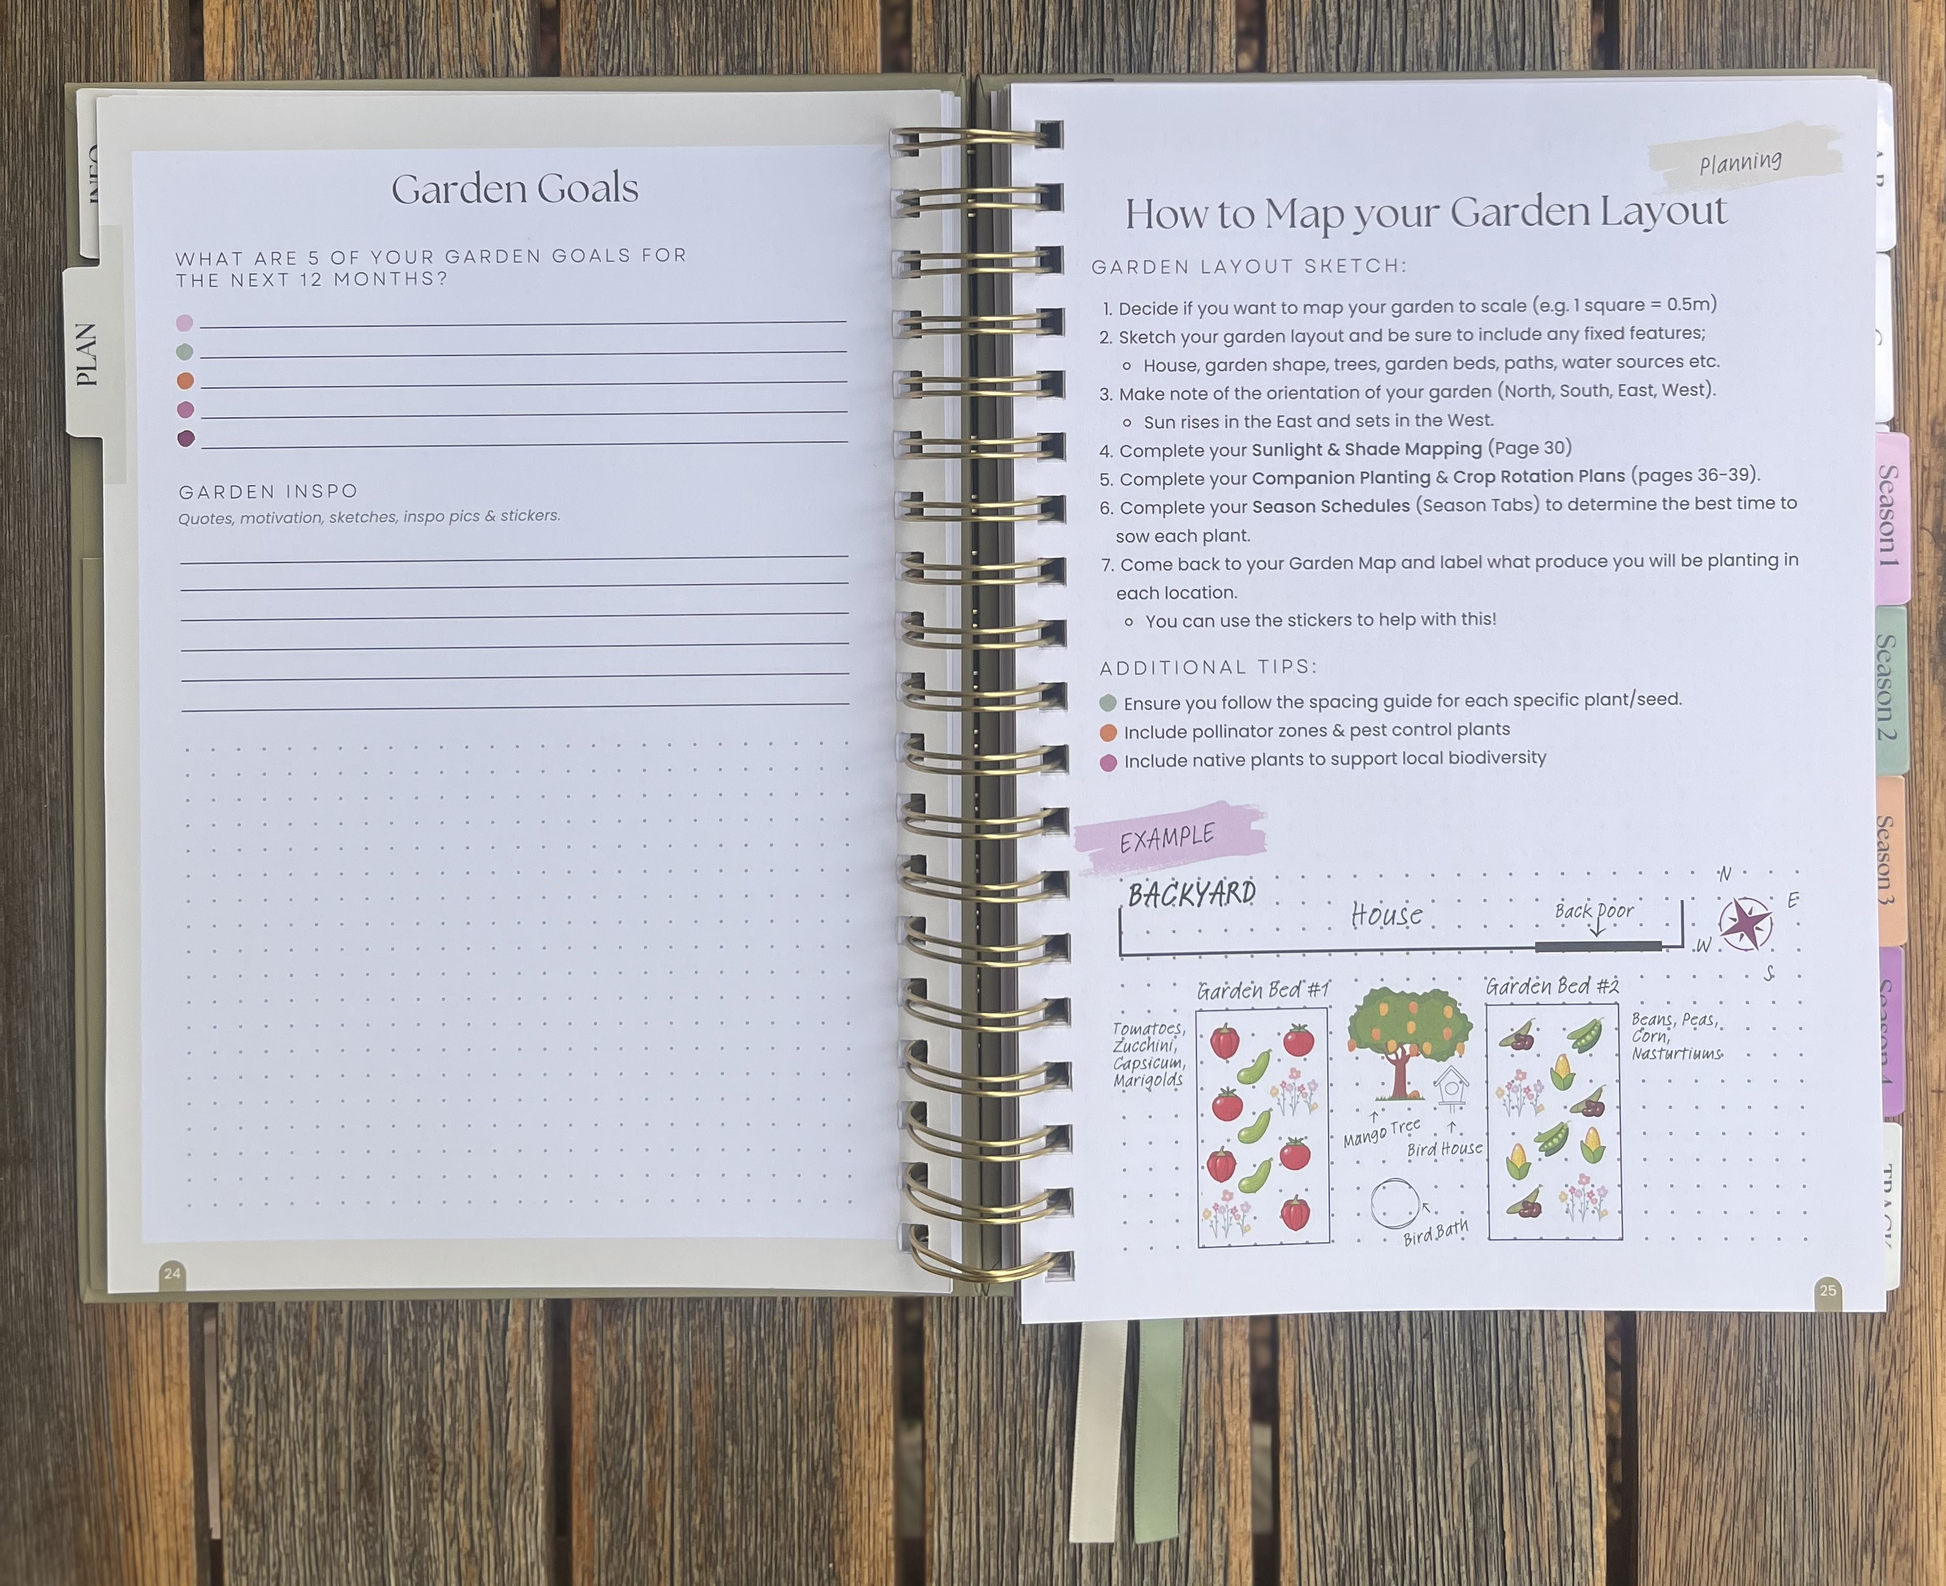 INFO
PLAN
Garden Goals
WHAT ARE 5 OF YOUR GARDEN GOALS FOR
THE NEXT 12 MONTHS?
GARDEN INSPO
Quotes, motivation, sketches, inspo pics & stickers.
24
Planning
How to Map your Garden Layout
GARDEN LAYOUT SKETCH:
1. Decide if you want to map your garden to scale (e.g. 1 square = 0.5m)
2. Sketch your garden layout and be sure to include any fixed features;
House, garden shape, trees, garden beds, paths, water sources etc.
3. Make note of the orientation of your garden (North, South, East, West).
Sun rises in the East and sets in the West.
4. Complete your Sunlight & Shade Mapping (Page 30)
5. Complete your Companion Planting & Crop Rotation Plans (pages 36-39).
6. Complete your Season Schedules (Season Tabs) to determine the best time to
sow each plant.
7. Come back to your Garden Map and label what produce you will be planting in
each location.
You can use the stickers to help with this!
ADDITIONAL TIPS:
Ensure you follow the spacing guide for each specific plant/seed.
Include pollinator zones & pest control plants
Include native plants to support local biodiversity
EXAMPLE
BACKYARD
House
Back Door
N
E
W
S
Garden Bed #1
Garden Bed #2
Tomatoes,
Zucchini,
Capsicum,
Marigolds
Beans, Peas,
Corn,
Nasturtiums
Mango Tree
Bird House
Bird Bath
25
Season 1
Season 2
Season 3
Season 4
TRACK